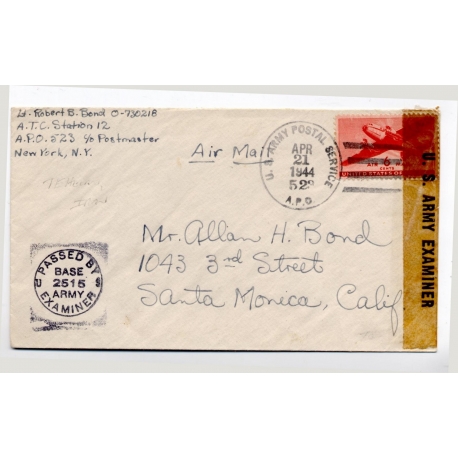 Lt. Robert B. Bond O-730218
A.T.C. Station 12
A.P.O. 523 c/o Postmaster
New York, N.Y.
Air Mail
U.S. ARMY POSTAL SERVICE
APR
21
1944
523
A.P.O.
AIR 6 CENTS
UNITED STATES OF
U. S. ARMY EXAMINER
Mr. Allan H. Bond
1043 3rd Street
Santa Monica, Calif
PASSED BY
BASE
2515
ARMY
EXAMINER
U S